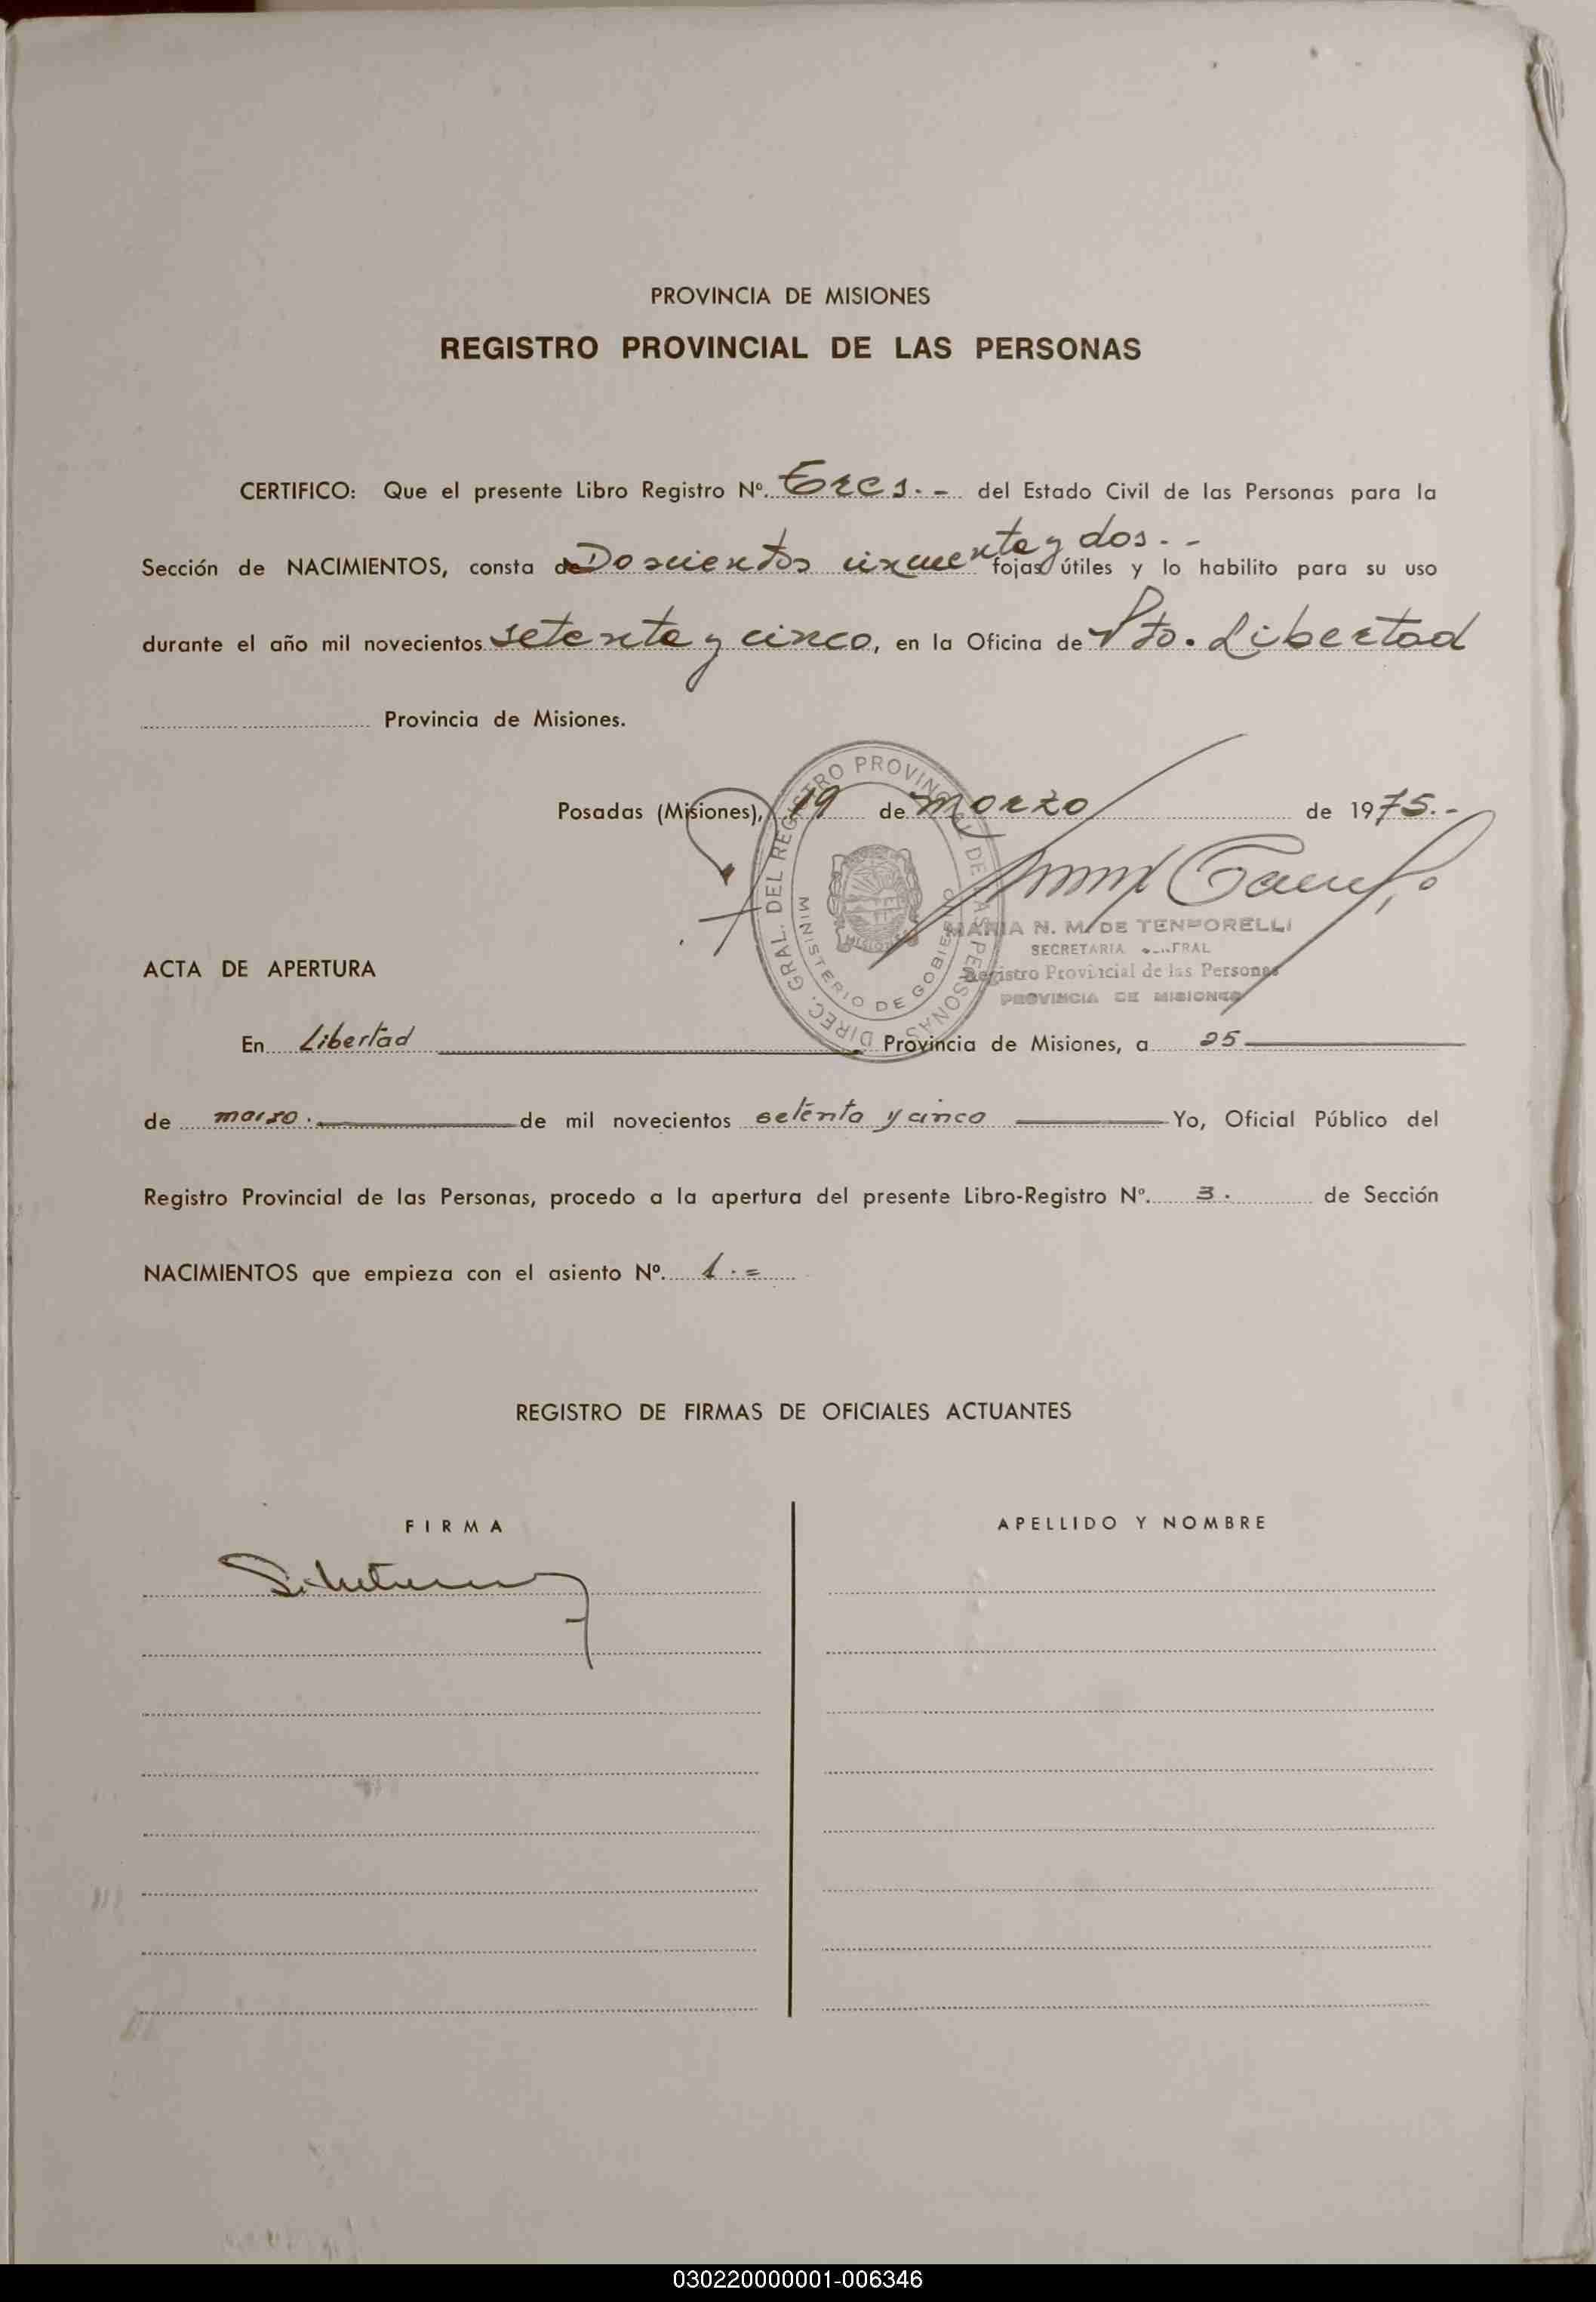 PROVINCIA DE MISIONES
REGISTRO PROVINCIAL DE LAS PERSONAS
CERTIFICO: Que el presente Libro Registro Nº. Tres. - del Estado Civil de las Personas para la
Sección de NACIMIENTOS, consta de Doscientos cincuenta y dos. - fojas útiles y lo habilito para su uso
durante el año mil novecientos setenta y cinco, en la Oficina de Pto. Libertad
Provincia de Misiones.
Posadas (Misiones), 19 de marzo de 1975.-
DIREC. GRAL. DEL REGISTRO PROVINCIAL DE LAS PERSONAS
MINISTERIO DE GOBIERNO
MISIONES
MARIA N. M. DE TEMPORELLI
SECRETARIA
Registro Provincial de las Personas
PROVINCIA DE MISIONES
ACTA DE APERTURA
En Libertad Provincia de Misiones, a 25
de marzo. de mil novecientos setenta y cinco Yo, Oficial Público del
Registro Provincial de las Personas, procedo a la apertura del presente Libro-Registro Nº. 3. de Sección
NACIMIENTOS que empieza con el asiento Nº. 1.=
REGISTRO DE FIRMAS DE OFICIALES ACTUANTES
FIRMA
APELLIDO Y NOMBRE
030220000001-006346